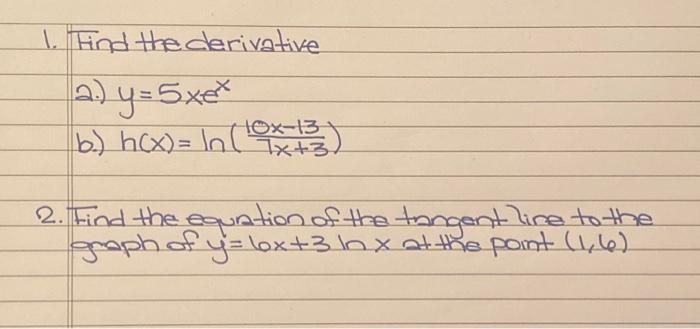 1. Find the derivative
a.) y=5xeˣ
b.) h(x)= ln(10x-13/7x+3)
2. Find the equation of the tangent line to the
graph of y=6x+3 ln x at the point (1,6)